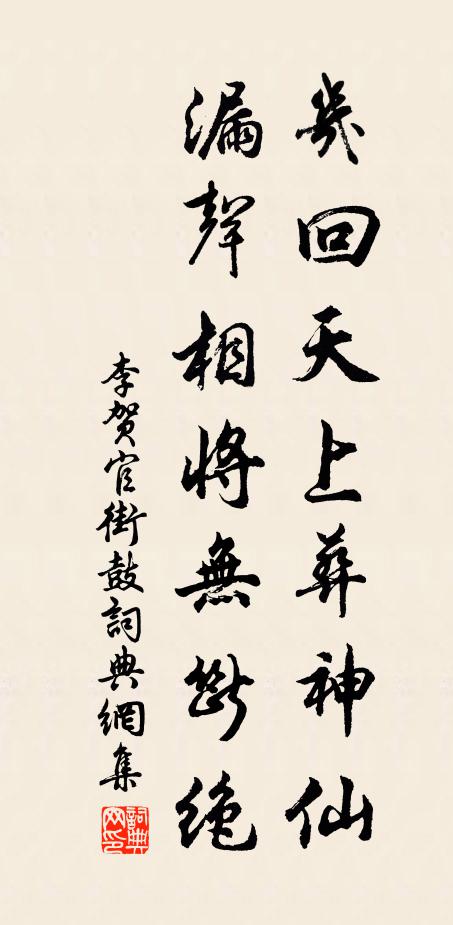 幾回天上葬神仙
漏聲相將無斷絕
李賀官街鼓詞典網集
詞典
网印